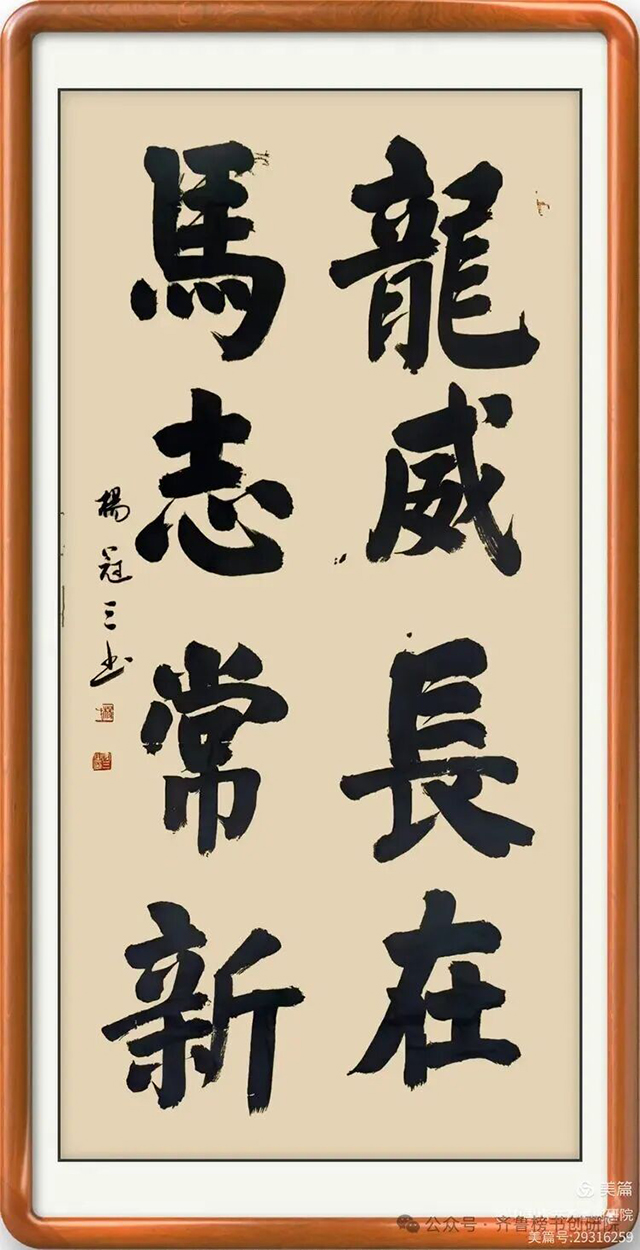 龍威長在
馬志常新
楊冠三书
美篇
公众号·齐鲁榜书创研院
美篇号:29316259